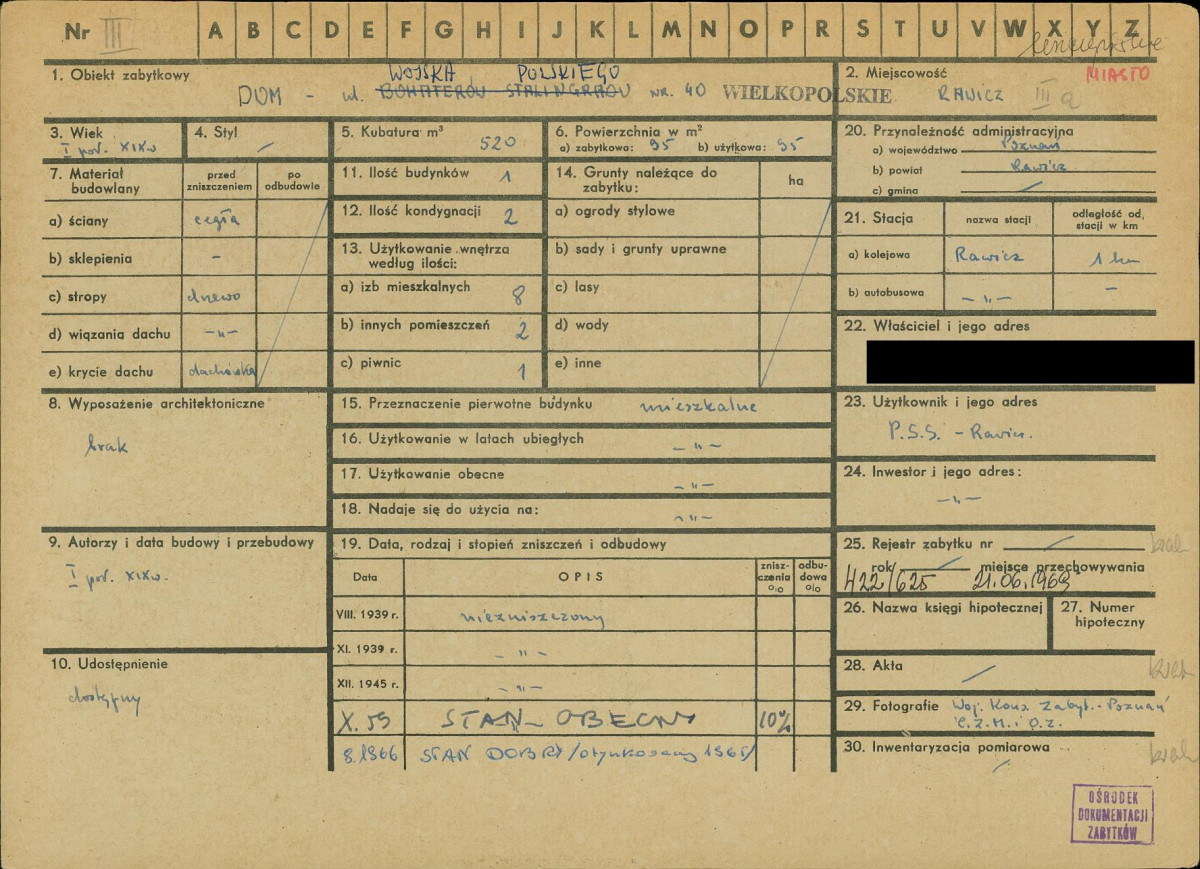 Nr III A B C D E F G H I J K L M N O P R S T U V W X Y Z
1. Obiekt zabytkowy
WOJSKA POLSKIEGO
DOM - ul. BOHATERÓW STALINGRADU NR. 40 WIELKOPOLSKIE
2. Miejscowość
MIASTO
RAWICZ III a
3. Wiek
I poł. XIX w
4. Styl
/
5. Kubatura m³
520
6. Powierzchnia w m²
a) zabytkowa: 95 b) użytkowa: 95
7. Materiał budowlany
przed zniszczeniem
po odbudowie
a) ściany cegła
b) sklepienia -
c) stropy drzewo
d) wiązania dachu -„-
e) krycie dachu dachówka
8. Wyposażenie architektoniczne
brak
9. Autorzy i data budowy i przebudowy
I poł. XIX w.
10. Udostępnienie
dostępny
11. Ilość budynków 1
12. Ilość kondygnacji 2
13. Użytkowanie wnętrza
według ilości:
a) izb mieszkalnych 8
b) innych pomieszczeń 2
c) piwnic 1
14. Grunty należące do
zabytku:
ha
a) ogrody stylowe
b) sady i grunty uprawne
c) lasy
d) wody
e) inne
15. Przeznaczenie pierwotne budynku mieszkalne
16. Użytkowanie w latach ubiegłych -„-
17. Użytkowanie obecne -„-
18. Nadaje się do użycia na: -„-
19. Data, rodzaj i stopień zniszczeń i odbudowy
Data OPIS zniszczenia % odbudowa %
VIII. 1939 r. niezniszczony
XI. 1939 r. -„-
XII. 1945 r. -„-
X. 59 STAN OBECNY 10%
8.1966 STAN DOBRY /otynkowany 1965/
20. Przynależność administracyjna
a) województwo Poznań
b) powiat Rawicz
c) gmina /
21. Stacja
nazwa stacji
odległość od stacji w km
a) kolejowa Rawicz 1 km
b) autobusowa -„- -
22. Właściciel i jego adres
23. Użytkownik i jego adres
P.S.S. - Rawicz.
24. Inwestor i jego adres:
-„-
25. Rejestr zabytku nr / brak
rok / miejsce przechowywania
422/625 21.06.1969
26. Nazwa księgi hipotecznej
27. Numer
hipoteczny
28. Akta / brak
29. Fotografie Woj. Kons. Zabyt. - Poznań
C.Z.M. i O.Z.
30. Inwentaryzacja pomiarowa / brak
OŚRODEK
DOKUMENTACJI
ZABYTKÓW